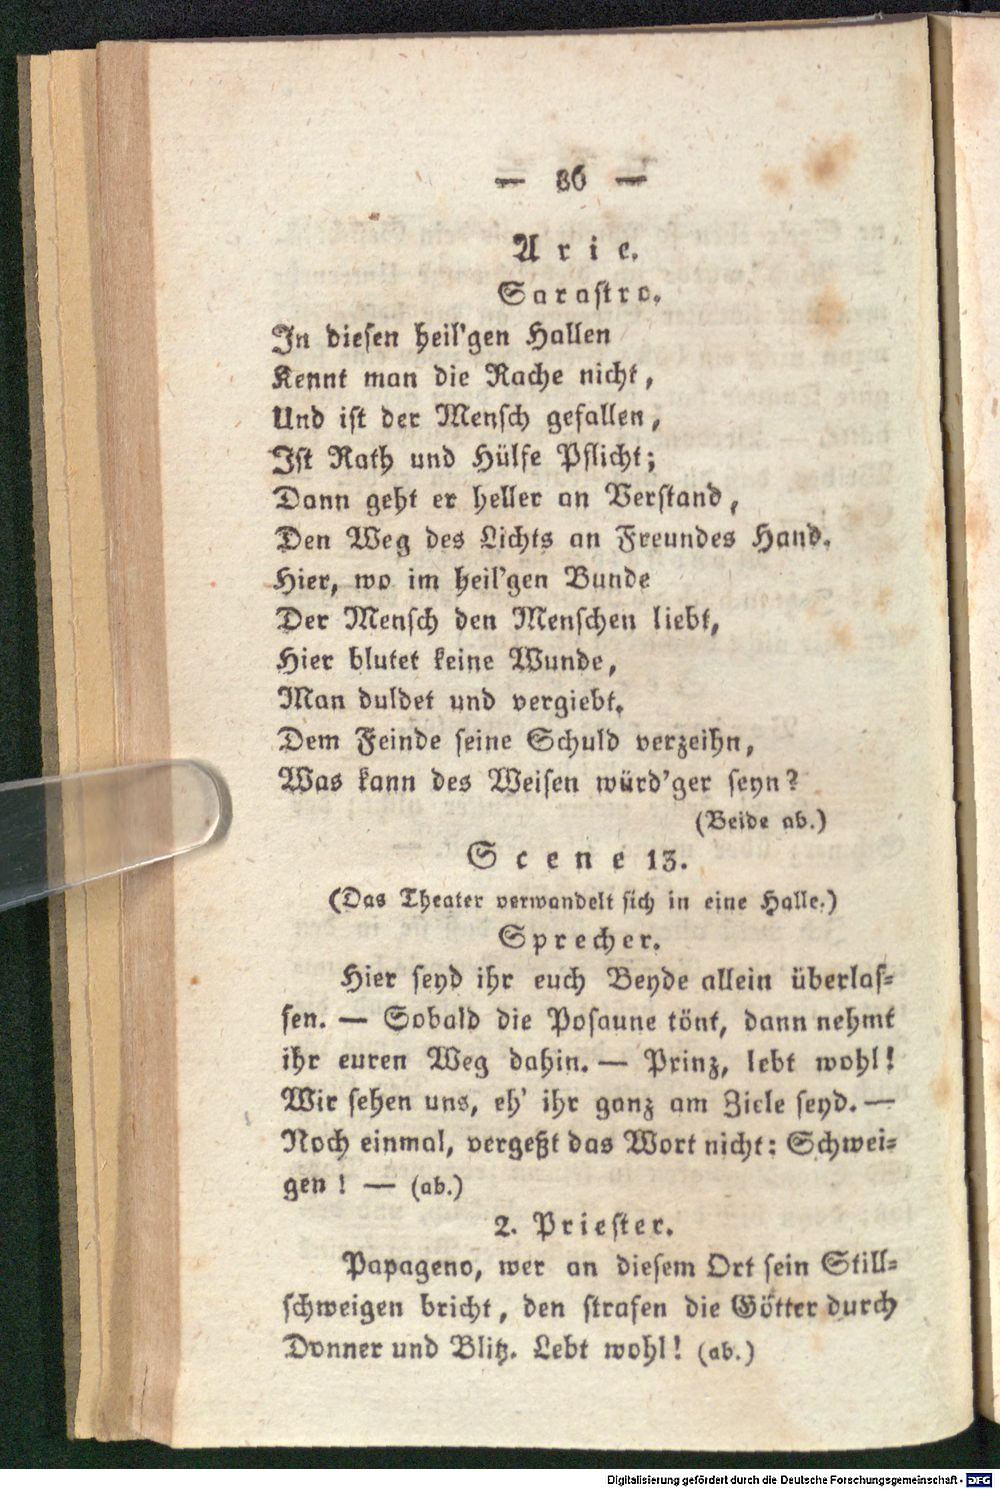 — 86 —
Arie.
Sarastro.
In diesen heil'gen Hallen
Kennt man die Rache nicht,
Und ist der Mensch gefallen,
Ist Rath und Hülfe Pflicht;
Dann geht er heller an Verstand,
Den Weg des Lichts an Freundes Hand.
Hier, wo im heil'gen Bunde
Der Mensch den Menschen liebt,
Hier blutet keine Wunde,
Man duldet und vergiebt.
Dem Feinde seine Schuld verzeihn,
Was kann des Weisen würd'ger seyn?
(Beide ab.)
Scene 13.
(Das Theater verwandelt sich in eine Halle.)
Sprecher.
Hier seyd ihr euch Beyde allein überlas-
sen. — Sobald die Posaune tönt, dann nehmt
ihr euren Weg dahin. — Prinz, lebt wohl!
Wir sehen uns, eh' ihr ganz am Ziele seyd. —
Noch einmal, vergeßt das Wort nicht: Schwei-
gen! — (ab.)
2. Priester.
Papageno, wer an diesem Ort sein Still-
schweigen bricht, den strafen die Götter durch
Donner und Blitz. Lebt wohl! (ab.)
Digitalisierung gefördert durch die Deutsche Forschungsgemeinschaft - DFG